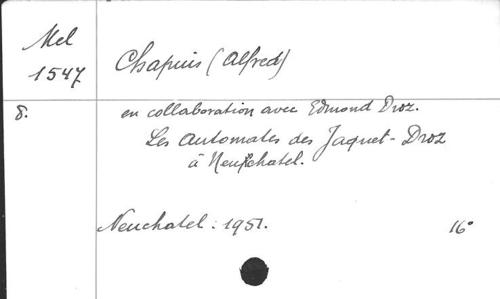 Mel
1547
Chapuis (Alfred)
8.
en collaboration avec Edmond Droz.
Les Automates des Jaquet-Droz
à Neufchatel.
Neuchatel : 1951.
16°